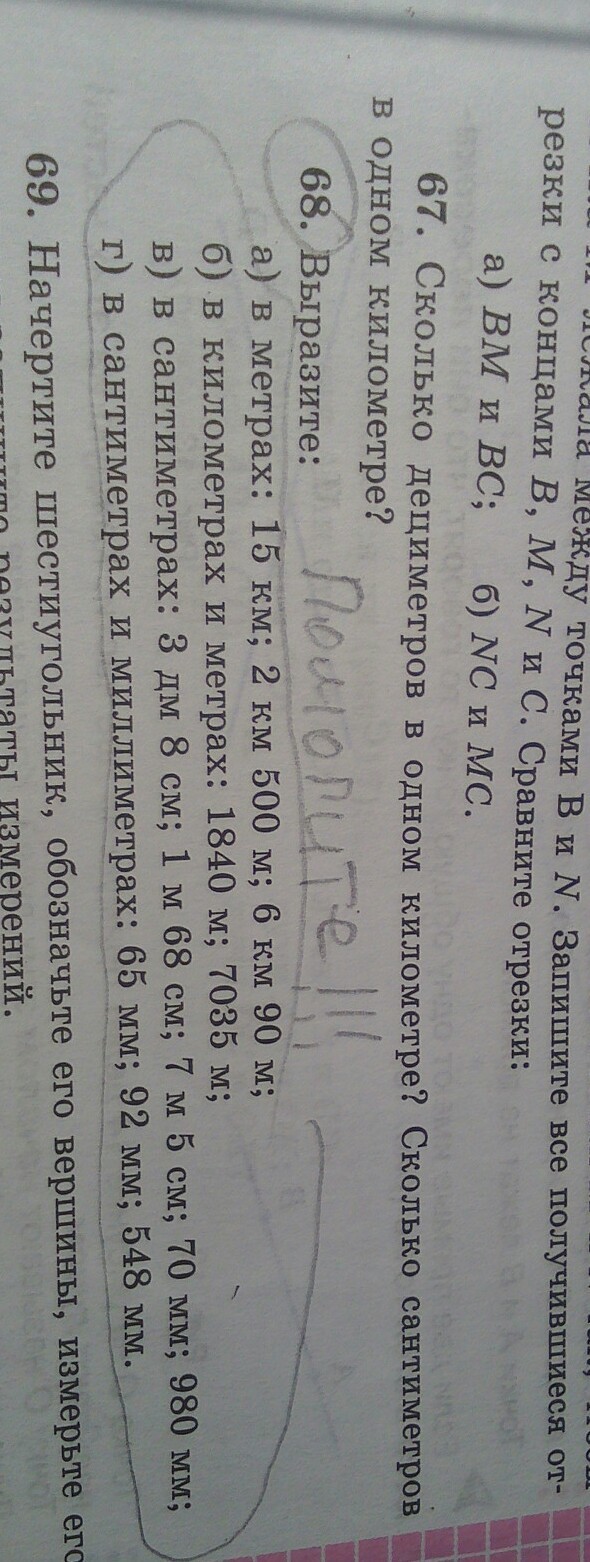 лежала между точками B и N. Запишите все получившиеся от-
резки с концами B, M, N и C. Сравните отрезки:
а) BM и BC; б) NC и MC.
67. Сколько дециметров в одном километре? Сколько сантиметров
в одном километре?
68. Выразите:
Помогите !!!
а) в метрах: 15 км; 2 км 500 м; 6 км 90 м;
б) в километрах и метрах: 1840 м; 7035 м;
в) в сантиметрах: 3 дм 8 см; 1 м 68 см; 7 м 5 см; 70 мм; 980 мм;
г) в сантиметрах и миллиметрах: 65 мм; 92 мм; 548 мм.
69. Начертите шестиугольник, обозначьте его вершины, измерьте его
результаты измерений.